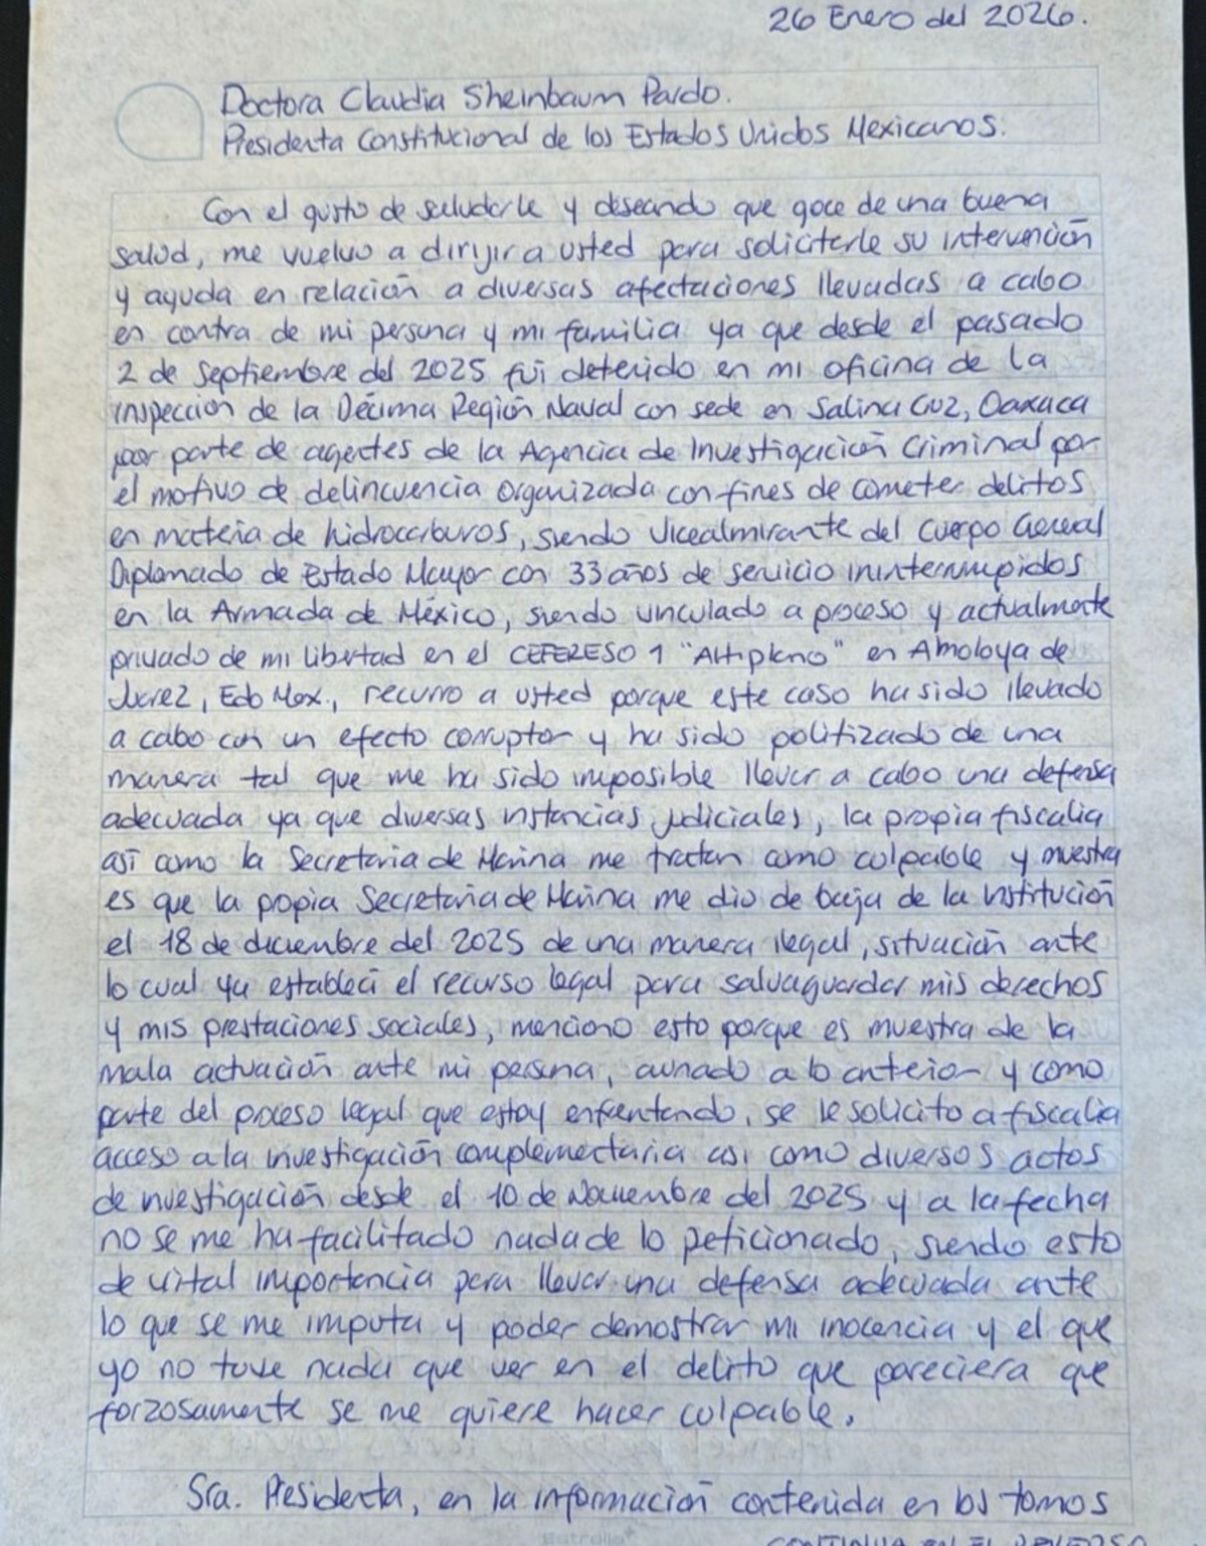 26 Enero del 2026.
Doctora Claudia Sheinbaum Pardo.
Presidenta Constitucional de los Estados Unidos Mexicanos.
Con el gusto de saludarle y deseando que goce de una buena
salud, me vuelvo a dirijir a usted para solicitarle su intervención
y ayuda en relación a diversas afectaciones llevadas a cabo
en contra de mi persona y mi familia ya que desde el pasado
2 de septiembre del 2025 fui detenido en mi oficina de la
inspección de la Décima Región Naval con sede en Salina Cruz, Oaxaca
por parte de agentes de la Agencia de Investigación Criminal por
el motivo de delincuencia organizada con fines de cometer delitos
en materia de hidrocarburos, siendo Vicealmirante del Cuerpo General
Diplomado de Estado Mayor con 33 años de servicio ininterrumpidos
en la Armada de México, siendo vinculado a proceso y actualmente
privado de mi libertad en el CEFERESO 1 "Altiplano" en Almoloya de
Juárez, Edo Mex., recurro a usted porque este caso ha sido llevado
a cabo con un efecto corruptor y ha sido politizado de una
manera tal que me ha sido imposible llevar a cabo una defensa
adecuada ya que diversas instancias judiciales, la propia fiscalia
así como la Secretaria de Marina me tratan como culpable y muestra
es que la propia Secretaría de Marina me dio de baja de la institución
el 18 de diciembre del 2025 de una manera ilegal, situación ante
lo cual ya establecí el recurso legal para salvaguardar mis derechos
y mis prestaciones sociales, menciono esto porque es muestra de la
mala actuación ante mi persona, aunado a lo anterior y como
parte del proceso legal que estoy enfrentando, se le solicito a fiscalia
acceso a la investigación complementaria así como diversos actos
de investigación desde el 10 de Noviembre del 2025 y a la fecha
no se me ha facilitado nada de lo peticionado, siendo esto
de vital importancia para llevar una defensa adecuada ante
lo que se me imputa y poder demostrar mi inocencia y el que
yo no tuve nada que ver en el delito que pareciera que
forzosamente se me quiere hacer culpable.
Sra. Presidenta, en la información contenida en los tomos
CONTINUA EN EL REVERSO